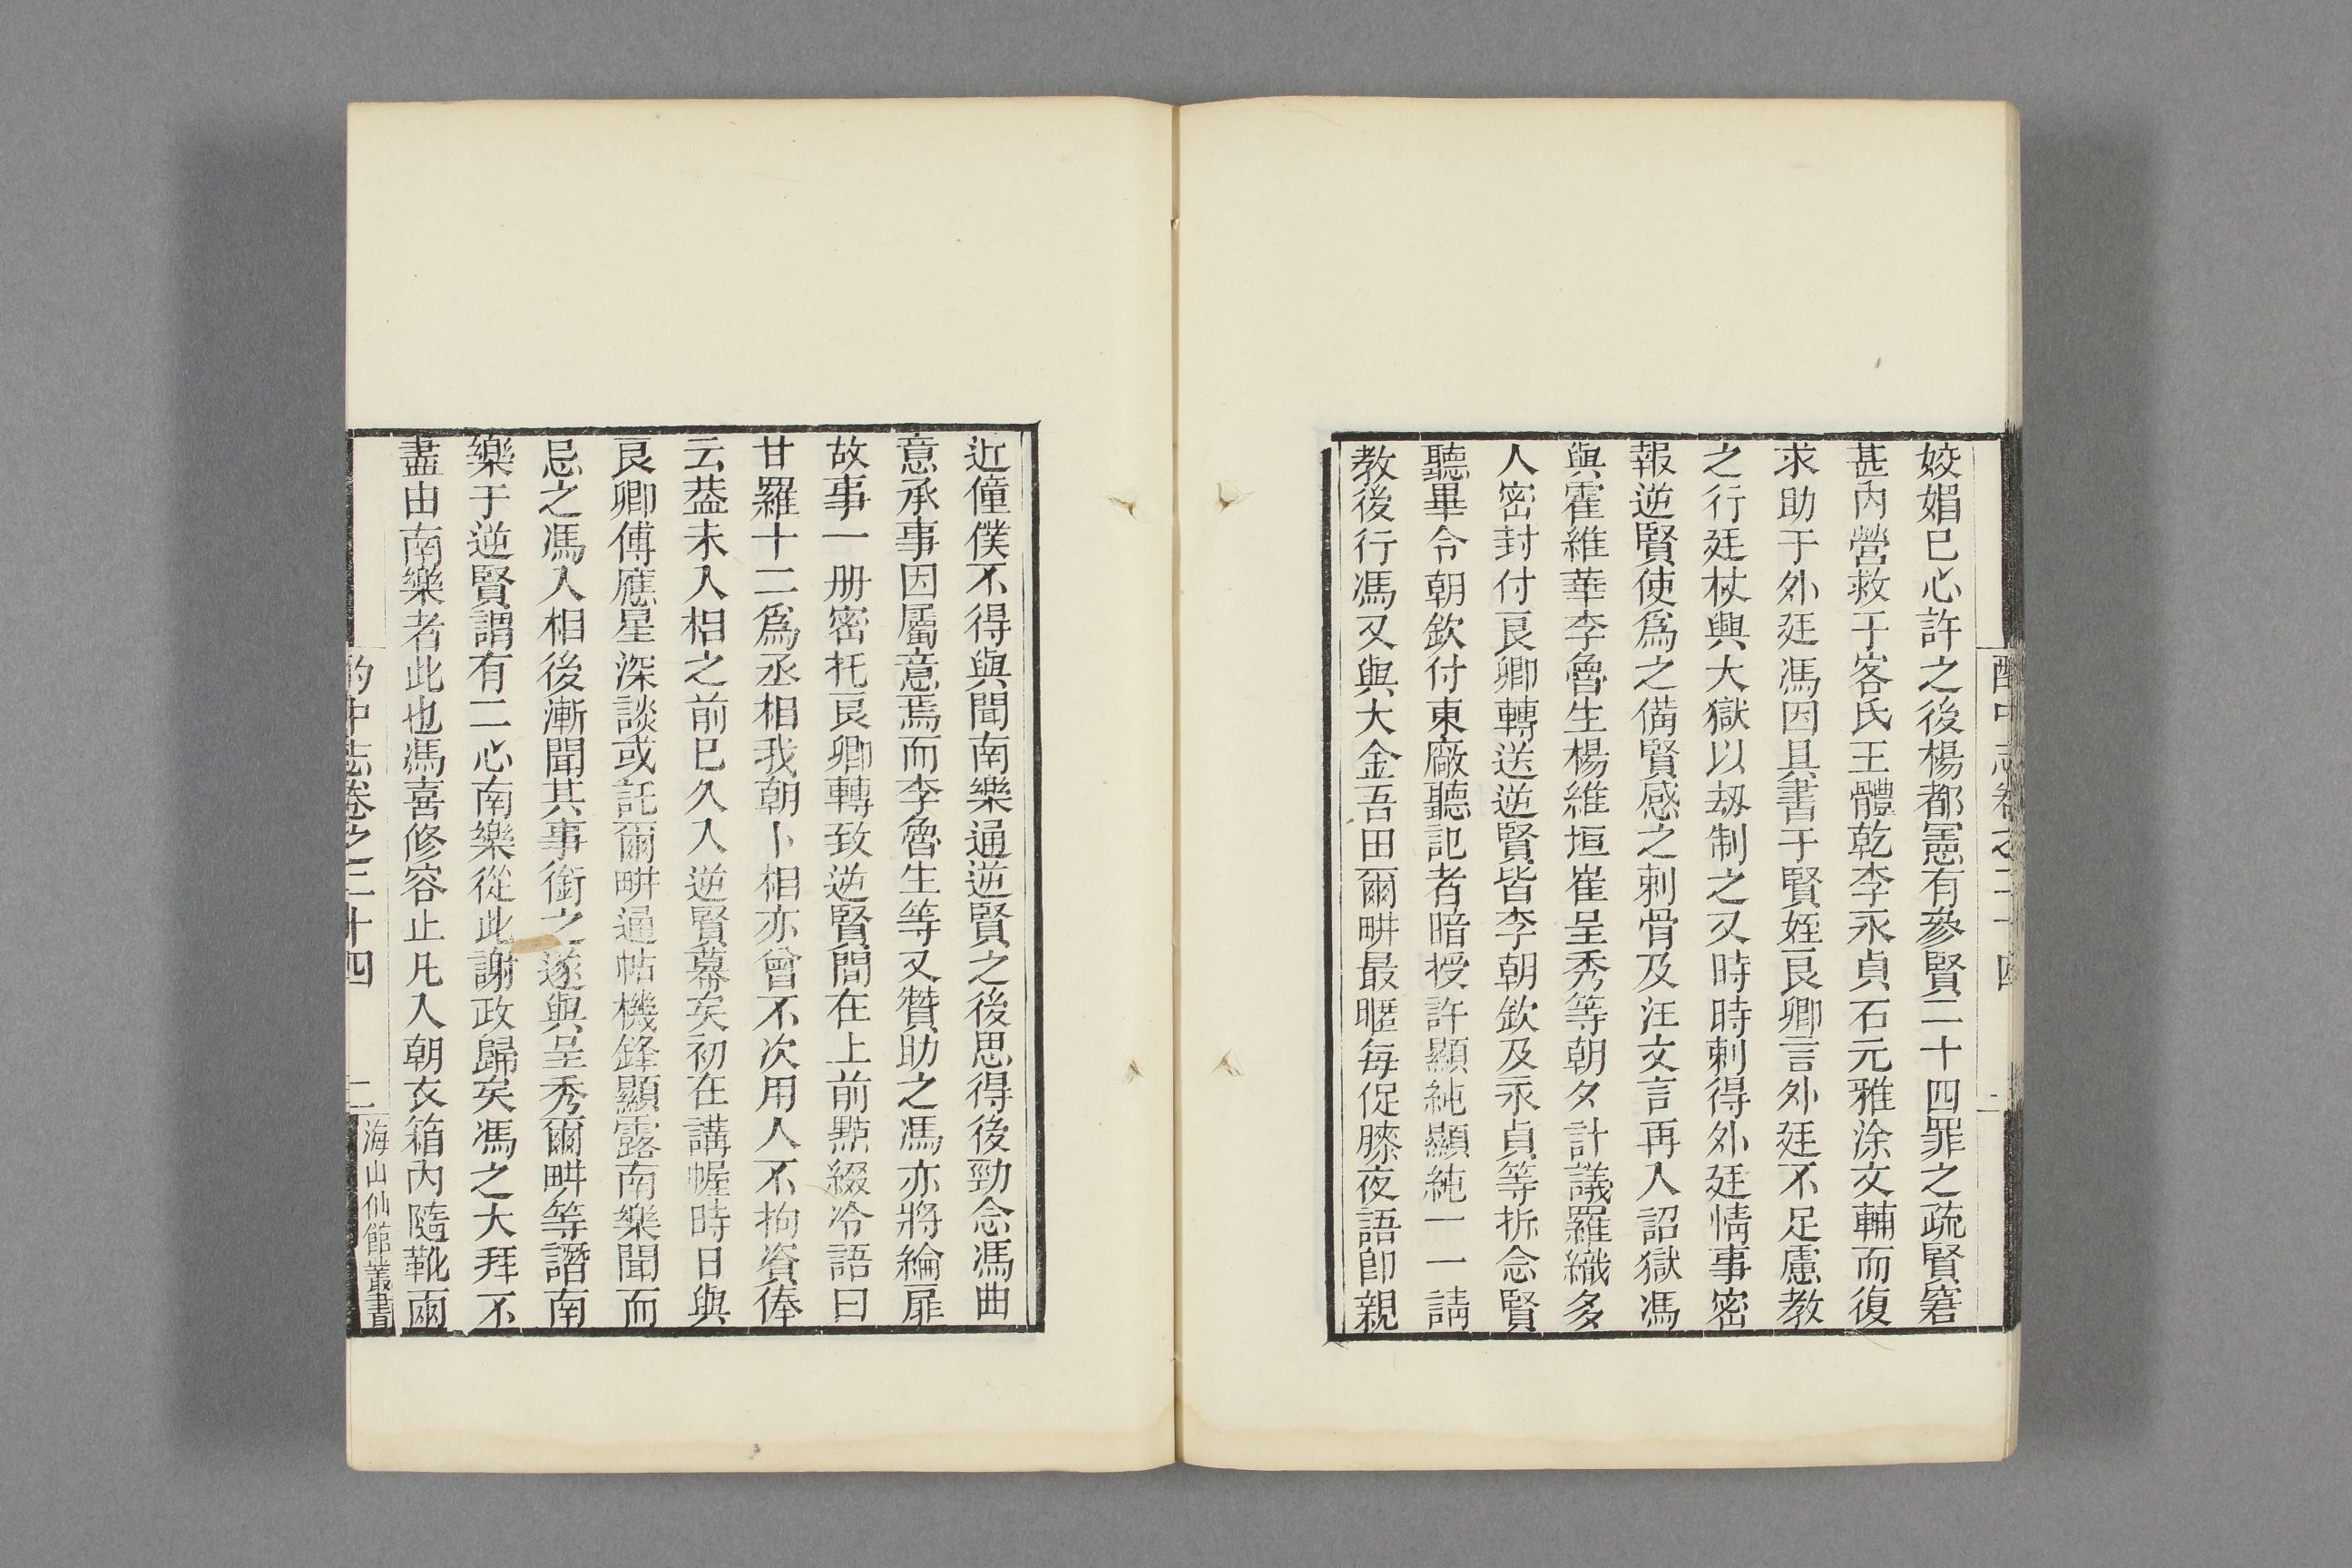 酌中志卷之二十四
姣媚已心許之後楊都憲有參賢二十四罪之疏賢窘
甚內營救于客氏王體乾李永貞石元雅涂文輔而復
求助于外廷馮因具書于賢姪良卿言外廷不足慮教
之行廷杖興大獄以刼制之又時時刺得外廷情事密
報逆賢使爲之備賢感之刺骨及汪文言再入詔獄馮
與霍維華李魯生楊維垣崔呈秀等朝夕計議羅織多
人密封付良卿轉送逆賢皆李朝欽及永貞等拆念賢
聽畢令朝欽付東廠聽記者暗授許顯純顯純一一請
教後行馮又與大金吾田爾畊最暱每促膝夜語卽親
近僮僕不得與聞南樂通逆賢之後思得後勁念馮曲
意承事因屬意焉而李魯生等又贊助之馮亦將綸扉
故事一册密托良卿轉致逆賢間在上前點綴冷語曰
甘羅十二爲丞相我朝卜相亦曾不次用人不拘資俸
云葢未入相之前已久入逆賢幕矣初在講幄時日與
良卿傅應星深談或託爾畊逼帖機鋒顯露南樂聞而
忌之馮入相後漸聞其事銜之遂與呈秀爾畊等譖南
樂于逆賢謂有二心南樂從此謝政歸矣馮之大拜不
盡由南樂者此也馮喜修容止凡入朝衣箱內隨靴兩
酌中志卷之二十四 二 海山仙館叢書